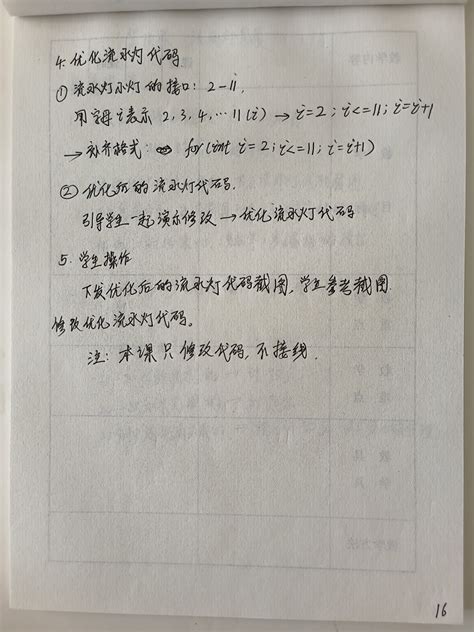 4. 优化流水灯代码
① 流水灯小灯的接口：2-11
用字母i表示 2, 3, 4, … 11 (i) → i=2；i<=11；i=i+1
→ 补齐格式： for(int i=2; i<=11; i=i+1)
② 优化后的流水灯代码.
引导学生一起演示修改 → 优化流水灯代码
5. 学生操作
下发优化后的流水灯代码截图，学生参考截图
修改优化流水灯代码。
注：本课只修改代码，不接线.
16